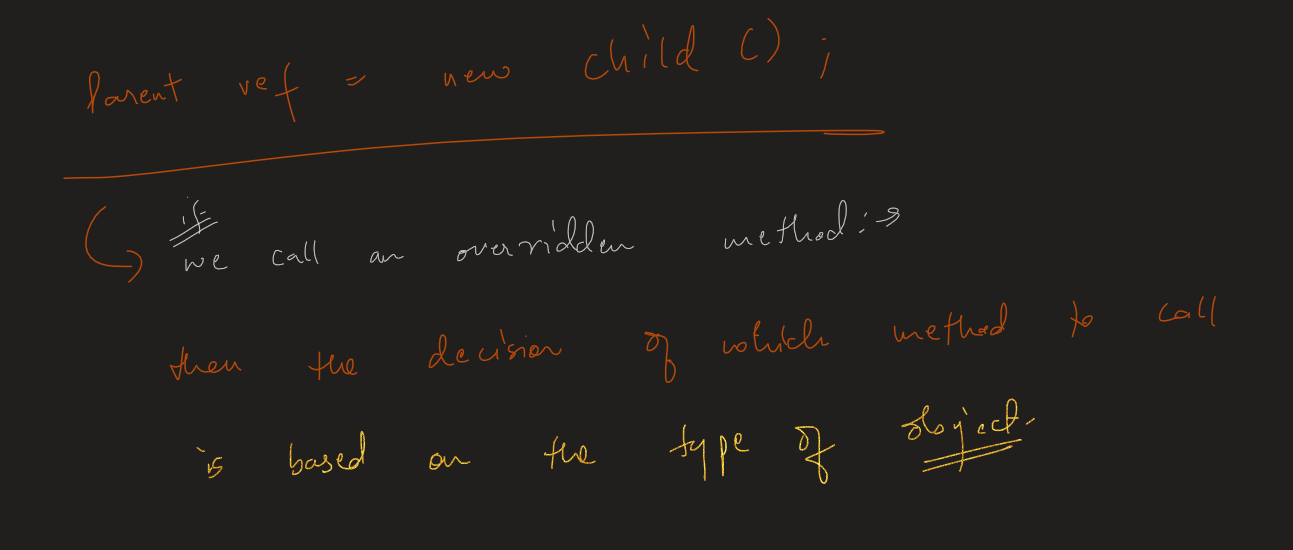 Parent ref = new Child () ;
if
we call an overridden method :→
then the decision of which method to call
is based on the type of object.